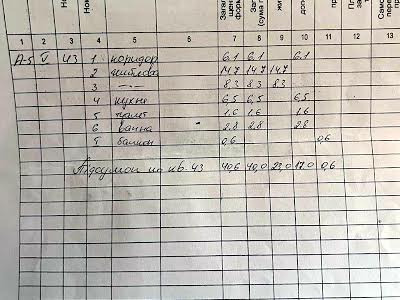 Загал
щен
форму
Заг
(сума г
жи
до
пр
Пл
за
Само
пере
пр
1 2 3 4 5 6 7 8 9 10 11 12 13
А-5 V 43 1 коридор 6.1 6.1 6.1
2 житлова 14.7 14.7 14.7
3 —"— 8.3 8.3 8.3
4 кухня 6,5 6,5 6,5
5 туалет 1.6 1.6 1.6
6 ванна 2.8 2.8 2.8
7 балкон 0,6 0,6
по кв. 43 40,6 40,0 23,0 17.0 0,6